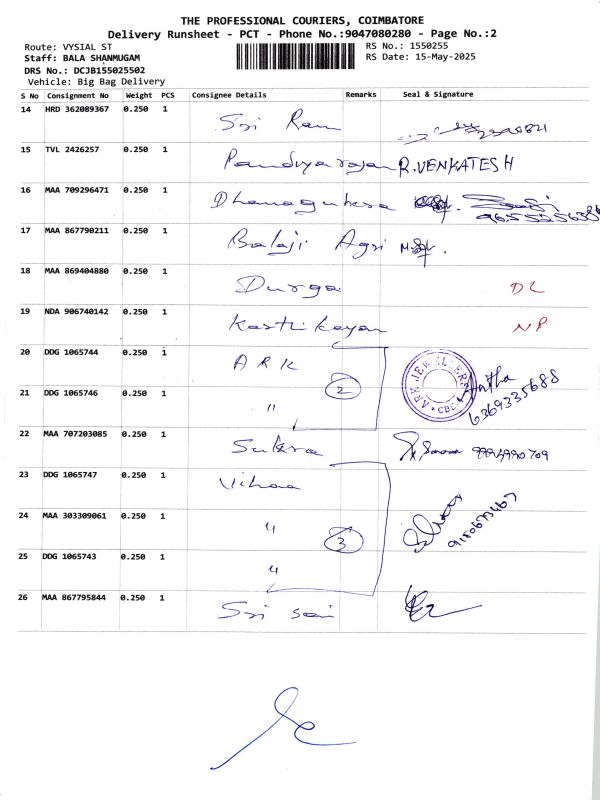 THE PROFESSIONAL COURIERS, COIMBATORE
Delivery Runsheet - PCT - Phone No.:9047080280 - Page No.:2
Route: VYSIAL ST
RS No.: 1550255
Staff: BALA SHANMUGAM
RS Date: 15-May-2025
DRS No.: DCJB155025502
Vehicle: Big Bag Delivery
S No Consignment No Weight PCS Consignee Details Remarks Seal & Signature
14 HRD 362089367 0.250 1 Sri Ram
15 TVL 2426257 0.250 1 Pandiyarajan R.VENKATESH
16 MAA 709296471 0.250 1
17 MAA 867790211 0.250 1 Balaji Agri
18 MAA 869404880 0.250 1 Durga DL
19 NDA 906740142 0.250 1 Karthikeyan NP
20 DDG 1065744 0.250 1 ARK
ARK JEWELLERS CBE
6369335688
21 DDG 1065746 0.250 1 " 2
22 MAA 707203085 0.250 1 Sukra
23 DDG 1065747 0.250 1 Vihaa
24 MAA 303309061 0.250 1 " 3
25 DDG 1065743 0.250 1 "
26 MAA 867795844 0.250 1 Sri Sai